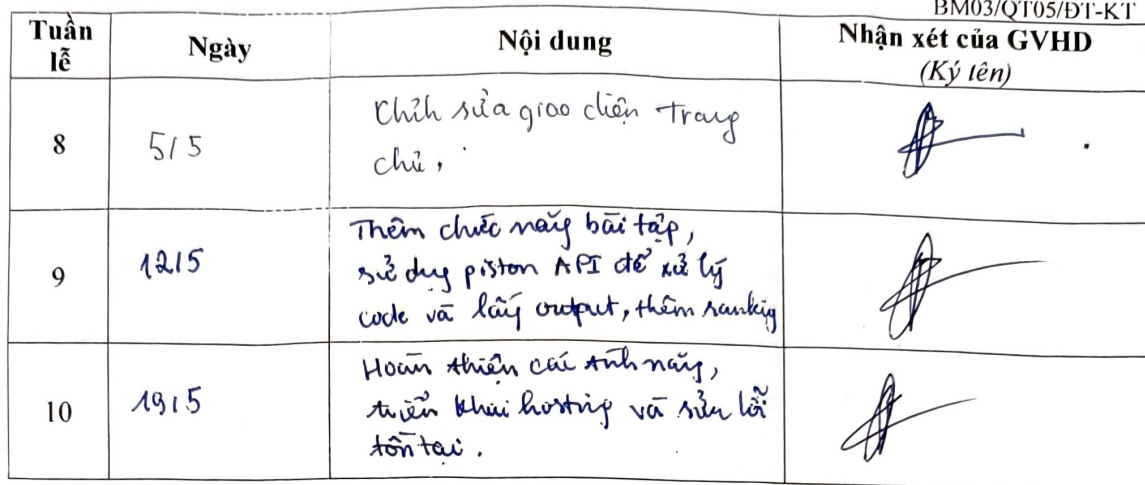 BM03/QT05/ĐT-KT
Tuần lễ Ngày Nội dung Nhận xét của GVHD
(Ký tên)
8 5/5 Chỉnh sửa giao diện Trang
chủ.
9 12/5 Thêm chức năng bài tập,
sử dụng piston API để xử lý
code và lấy output, thêm ranking
10 19/5 Hoàn thiện các tính năng,
triển khai hosting và sửa lỗi
tồn tại.